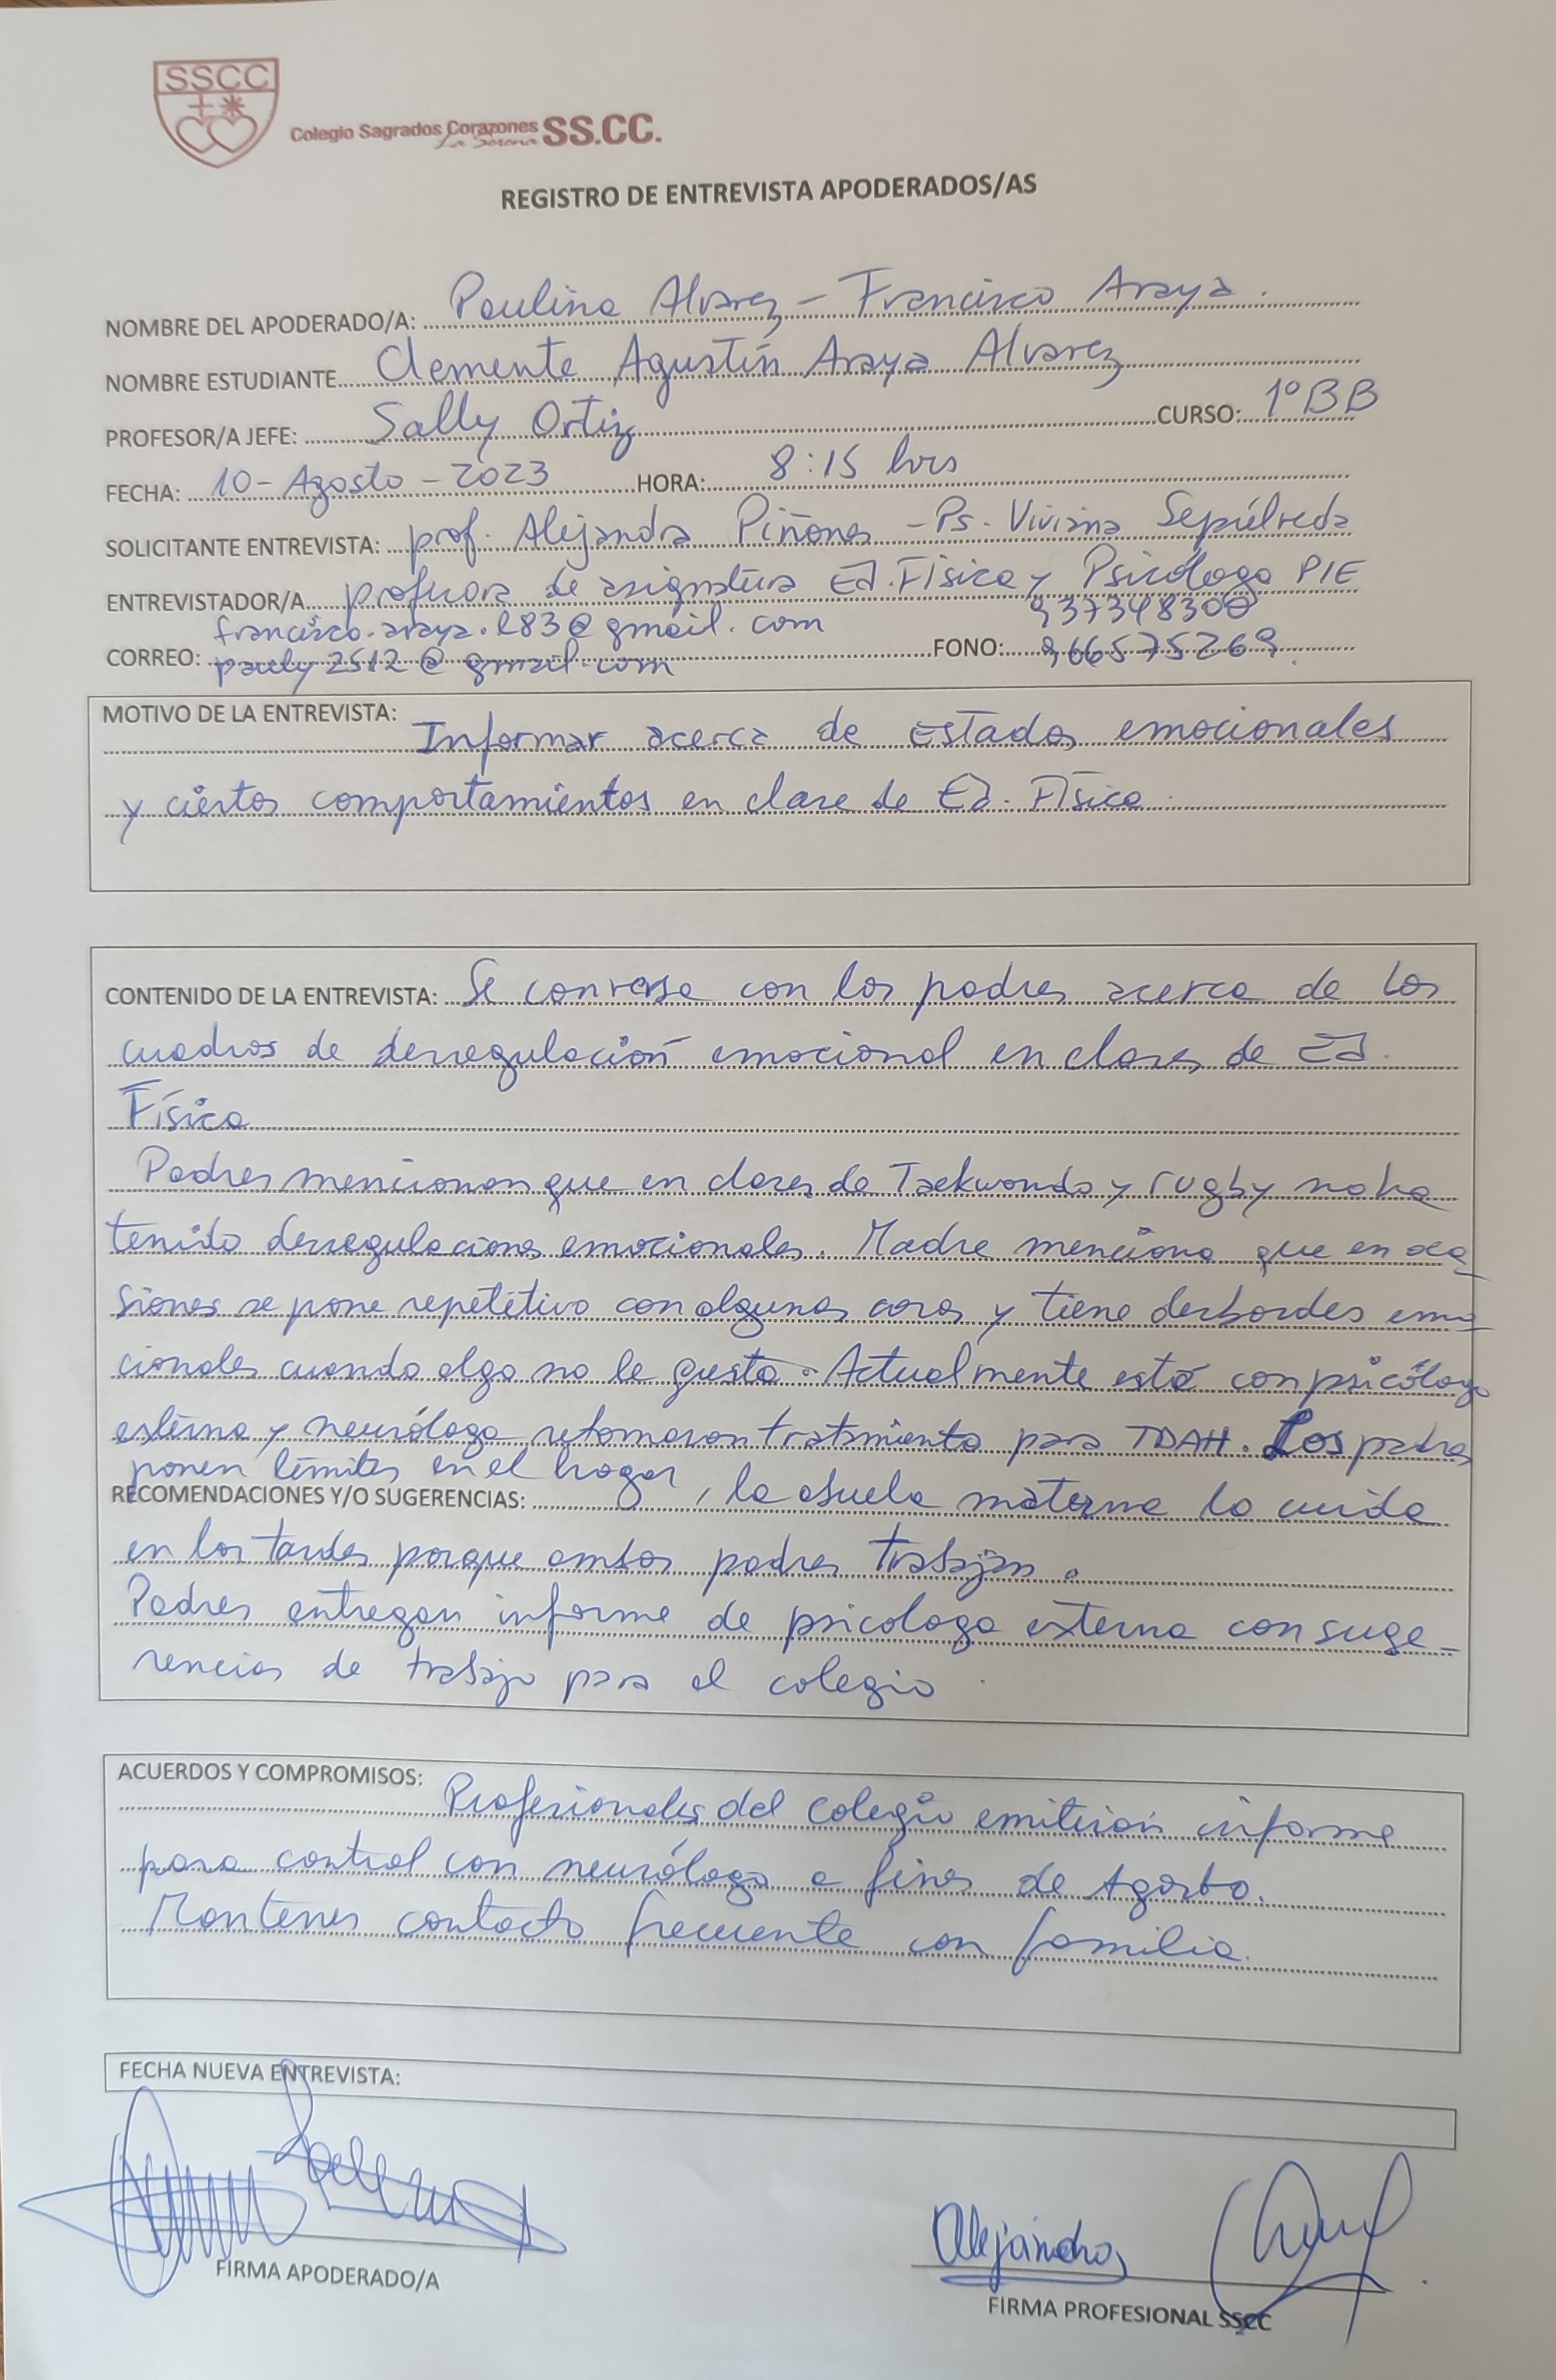 SSCC
Colegio Sagrados Corazones SS.CC.
La Serena
REGISTRO DE ENTREVISTA APODERADOS/AS
NOMBRE DEL APODERADO/A: Paulina Alvarez - Francisco Araya.
NOMBRE ESTUDIANTE Clemente Agustín Araya Alvarez
PROFESOR/A JEFE: Sally Ortiz CURSO: 1° BB
FECHA: 10 - Agosto - 2023 HORA: 8:15 hrs
SOLICITANTE ENTREVISTA: prof. Alejandra Piñones - Ps. Viviana Sepúlveda
ENTREVISTADOR/A profesora de asignatura Ed. Física y Psicóloga PIE
francisco.araya.l83@gmail.com 937348300
CORREO: pauly2512@gmail.com FONO: 966575269.
MOTIVO DE LA ENTREVISTA: Informar acerca de Estados emocionales
y ciertos comportamientos en clase de Ed. Física.
CONTENIDO DE LA ENTREVISTA: Se conversa con los padres acerca de los
cuadros de desregulación emocional en clases de Ed.
Física
Padres mencionan que en clases de Taekwondo y rugby no ha
tenido desregulaciones emocionales. Madre menciona que en oca-
siones se pone repetitivo con algunas cosas y tiene desbordes emo-
cionales cuando algo no le gusta. Actualmente está con psicóloga
externa y neuróloga retomaron tratamiento para TDAH. Los padres
ponen límites en el hogar
RECOMENDACIONES Y/O SUGERENCIAS: , la abuela materna lo cuida
en las tardes porque ambos padres trabajan.
Padres entregan informe de psicologa externa con suge-
rencias de trabajo para el colegio.
ACUERDOS Y COMPROMISOS: Profesionales del colegio emitirán informe
para control con neuróloga a fines de Agosto.
Mantener contacto frecuente con familia.
FECHA NUEVA ENTREVISTA:
Alejandra
FIRMA APODERADO/A
FIRMA PROFESIONAL SSCC